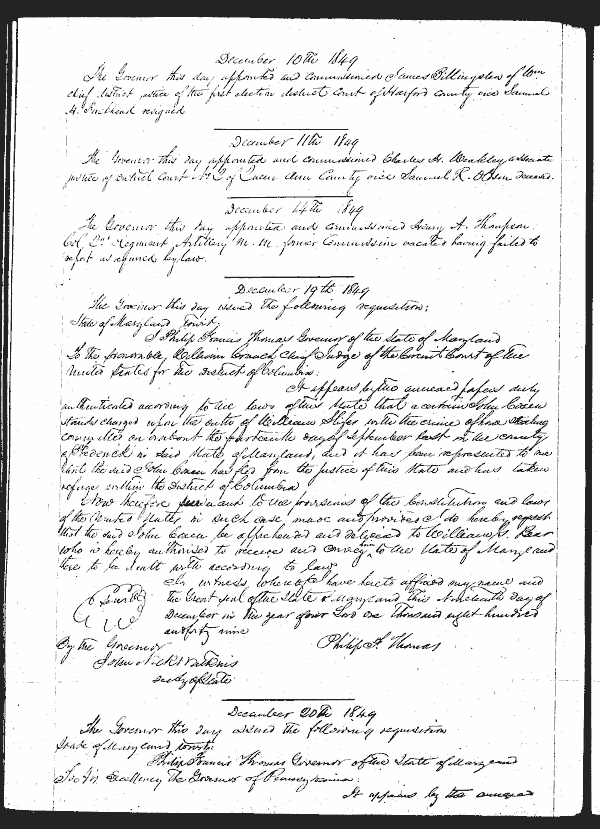 December 10th 1849
The Govenor this day appointed and commissioned James Billingslea of Wm
chief district justice of the first election district court of Harford county vice Samuel
resigned
December 11th 1849
The Govenor this day appointed and commissioned Charles H. Weakley associate
justice of District Court No 2 of Queen Ann County vice Samuel R. deceased.
December 14th 1849
The Governor this day appointed and commissioned Henry A. Thompson
Col 2d Regiment Artillery M. M. former Commission vacated having failed to
report as required by law.
December 19th 1849
The Govenor this day issued the following requisition;
State of Maryland Towit;
I Philip Francis Thomas Govenor of the State of Maryland
To the honorable William Cranch Chief Judge of the Circuit Court of the
United States for the District of Columbia:
It appears by the annexed papers duly
authenticated according to the laws of this State that a certain John
stands charged upon the oath of William with the crime of horse stealing
committed on or about the fourteenth day of September last in the county
of Frederick in said State of Maryland, and it has been represented to me
that the said John has fled from the justice of this State and has taken
refuge within the District of Columbia
Now therefore pursuant to the provisions of the Constitution and laws
of the United States in such case made and provided I do hereby request
that the said John be apprehended and delivered to William
who is hereby authorised to receive and convey him to the State of Maryland
there to be dealt with according to law
In witness, whereof I have hereto affixed my name and
the Great seal of the State of Maryland this Nineteenth day of
December in the year of our Lord one Thousand eight hundred
and forty nine
By the Governor
Philip F. Thomas
John Nicks Watkins
secty of State
December 20th 1849
The Governor this day issued the following requisition
State of Maryland towit;
Philip Francis Thomas Governor of the State of Maryland
To his Excellency the Governor of Pennsylvania:
It appears by the annexed